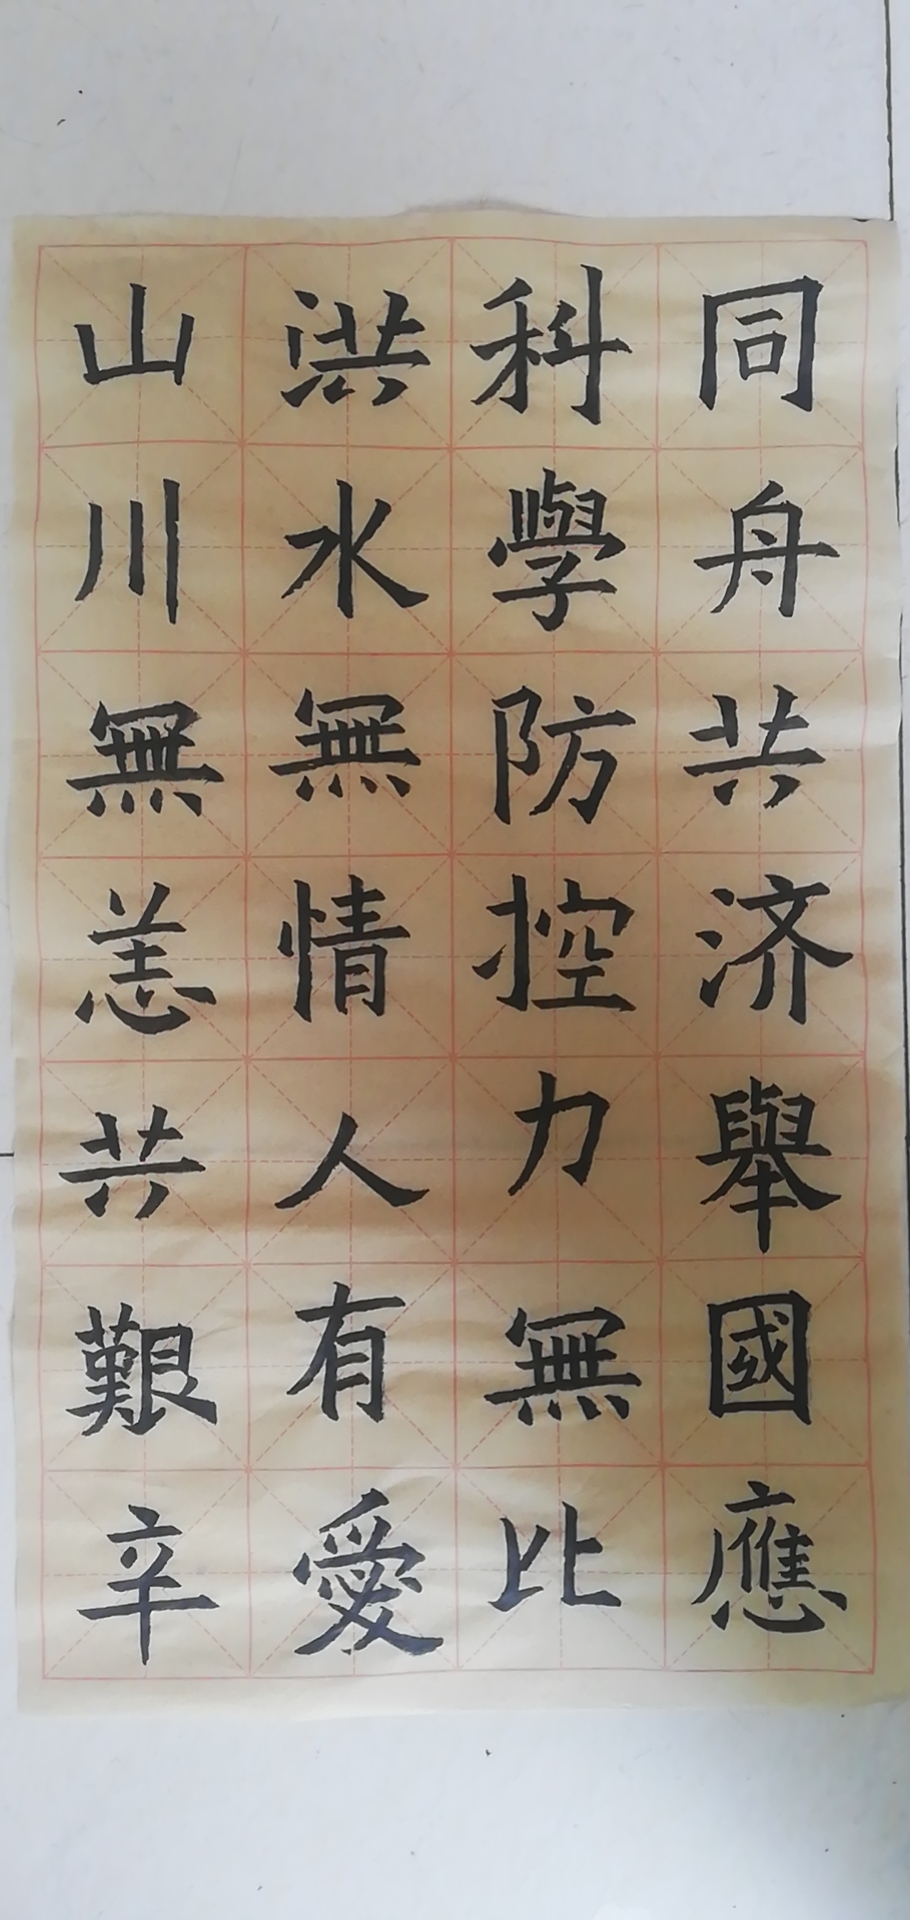 同舟共济舉國應
科學防控力無比
洪水無情人有愛
山川無恙共艱辛